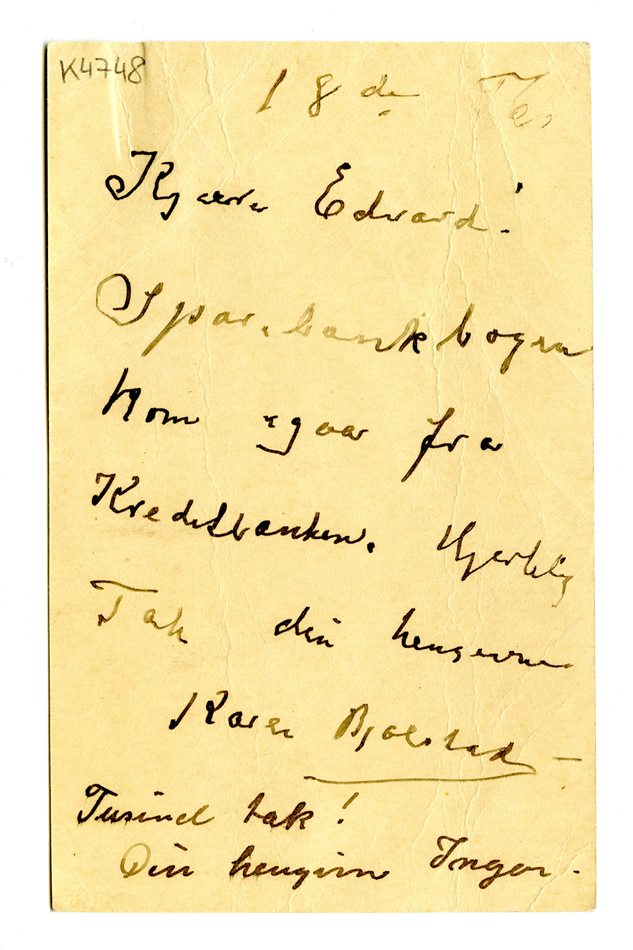 K4748
18de
Kjære Edvard!
Sparebankbogen
kom igaar fra
Kreditbanken. Hjertelig
Tak din hengivne
Karen Bjølstad
Tusind tak!
Din hengivne Inger.